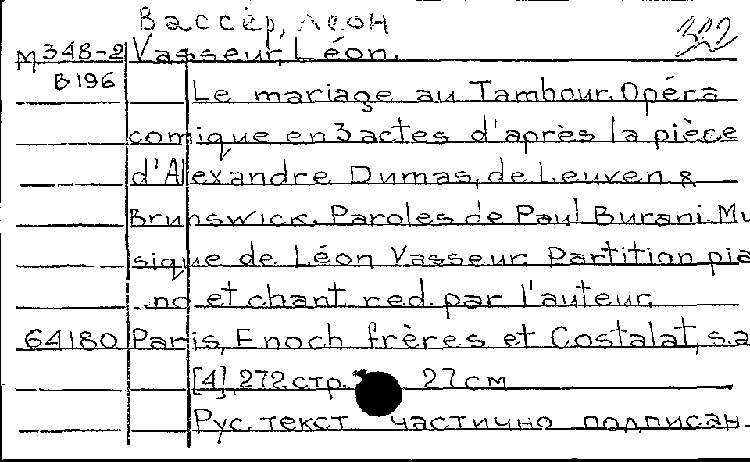 Вассёр, Леон
322
М 348-2 Vasseur, Léon.
В 196
Le mariage au Tambour. Opéra
comique en 3 actes d'après la pièce
d'Alexandre Dumas, de Leuven &
Brunswick. Paroles de Paul Burani. Mu
sique de Léon Vasseur. Partition pia
no et chant red. par l'auteur.
64180 Paris, Enoch frères et Costalat, s.a
[4], 272 стр. 27 см
Рус. текст частично подписан.